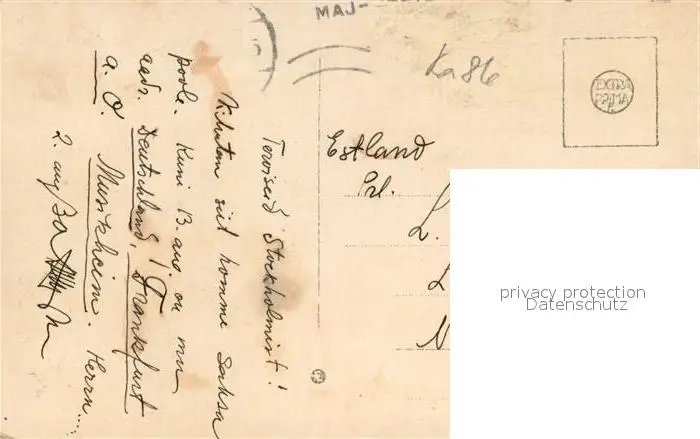 MAJ-
Ka 86
EXTRA
PRIMA
Terviseid Stockholmist!
Kihutan siit homme Saksa
poole. Kuni 13. aug on mu
aadr. Deutschland, Frankfurt
a. O. Musikheim. Herrn....
2. aug
Estland
Prl.
L.
L
N
privacy protection
Datenschutz